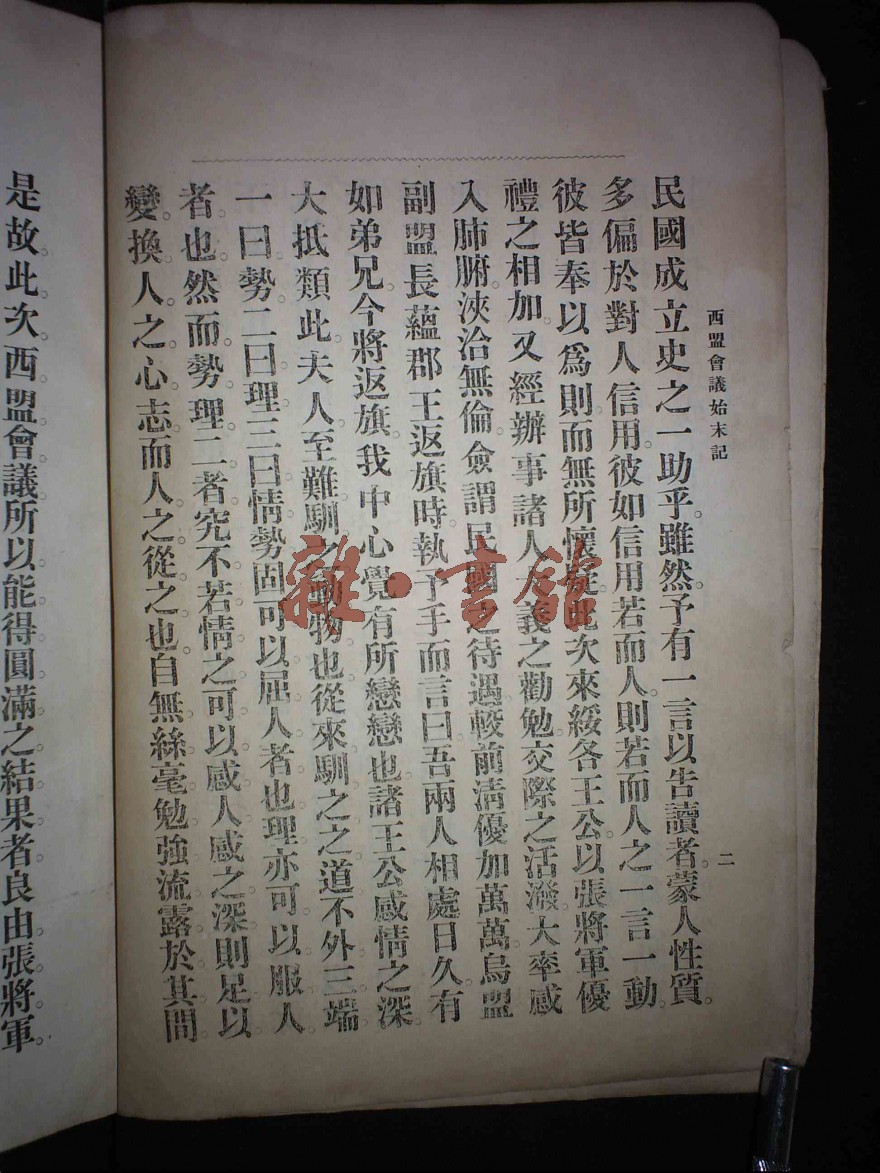 西盟會議始末記
二
民國成立史之一助乎。雖然。予有一言以告讀者。蒙人性質。
多偏於對人信用。彼如信用若而人。則若而人之一言一動。
彼皆奉以爲則。而無所懷疑。此次來綏各王公。以張將軍優
禮之相加。又經辦事諸人大義之勸勉。交際之活潑。大率感
入肺腑。浹洽無倫。僉謂民國之待遇。較前淸優加萬萬。烏盟
副盟長蘊郡王返旗時。執予手而言曰。吾兩人相處日久。有
如弟兄。今將返旗。我中心覺有所戀戀也。諸王公感情之深。
大抵類此。夫人至難馴之動物也。從來馴之之道。不外三端。
一曰勢。二曰理。三曰情。勢固可以屈人者也。理亦可以服人
者也。然而勢理二者。究不若情之可以感人。感之深。則足以
變換人之心志。而人之從之也。自無絲毫勉強流露於其間。
是故此次西盟會議所以能得圓滿之結果者。良由張將軍
雜·書館